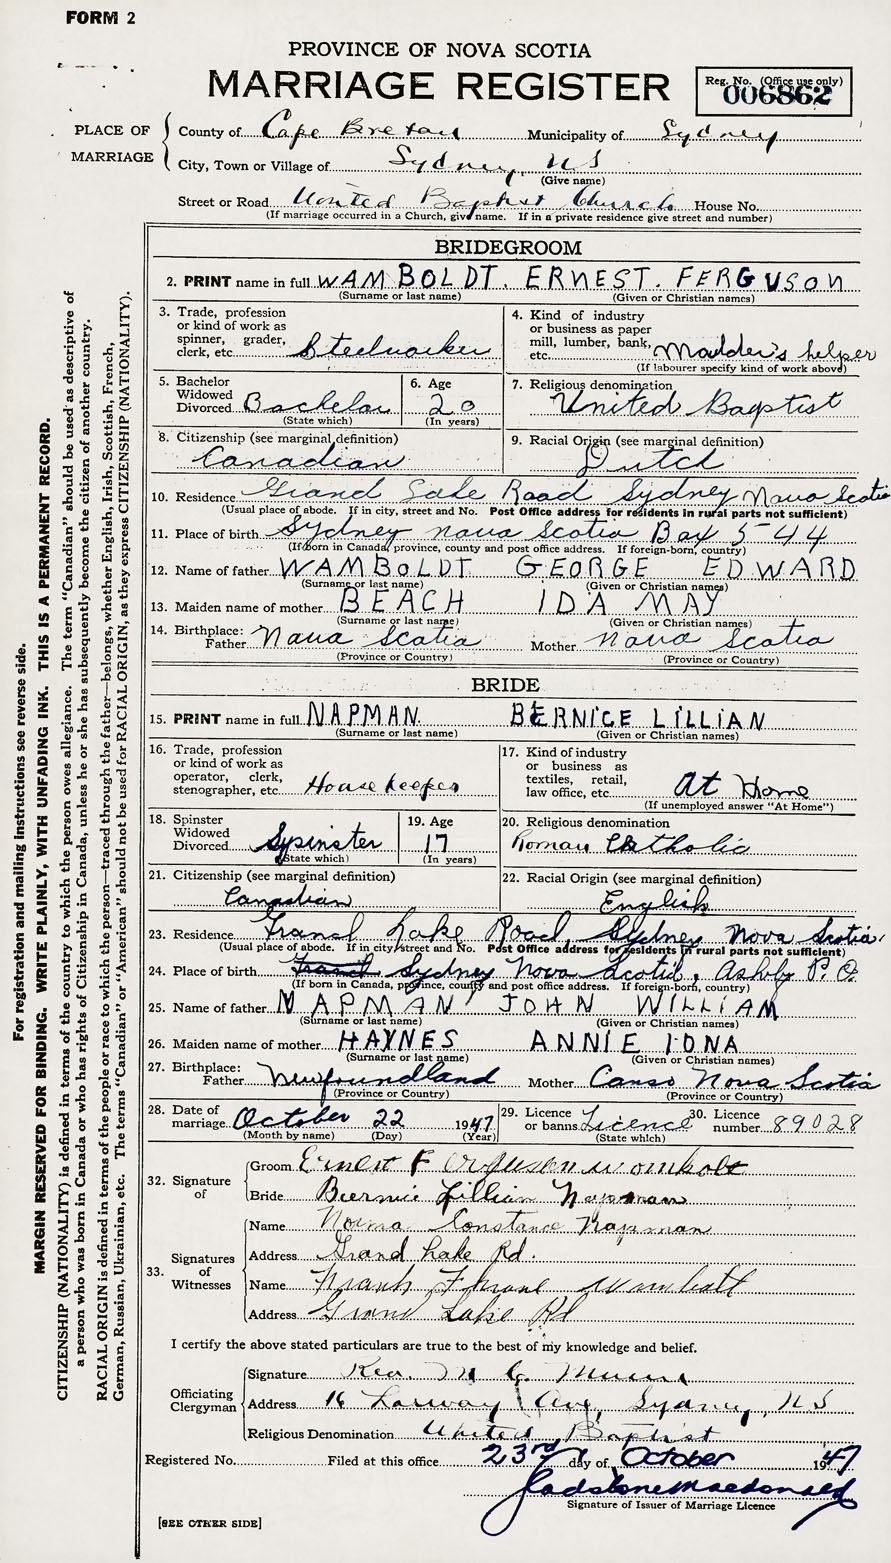 FORM 2
PROVINCE OF NOVA SCOTIA
MARRIAGE REGISTER
Reg. No. (Office use only)
006862
PLACE OF MARRIAGE
County of Cape Breton Municipality of Sydney
City, Town or Village of Sydney, N S
(Give name)
Street or Road United Baptist Church House No.
(If marriage occurred in a Church, give name. If in a private residence give street and number)
BRIDEGROOM
2. PRINT name in full WAMBOLDT. ERNEST. FERGUSON
(Surname or last name) (Given or Christian names)
3. Trade, profession or kind of work as spinner, grader, clerk, etc. Steelworker
4. Kind of industry or business as paper mill, lumber, bank, etc. Moulder's helper
(If labourer specify kind of work above)
5. Bachelor Widowed Divorced Bachelor
(State which)
6. Age 20
(In years)
7. Religious denomination United Baptist
8. Citizenship (see marginal definition) Canadian
9. Racial Origin (see marginal definition) Dutch
10. Residence Grand Lake Road Sydney Nova Scotia
(Usual place of abode. If in city, street and No. Post Office address for residents in rural parts not sufficient)
11. Place of birth Sydney Nova Scotia Box 544
(If born in Canada, province, county and post office address. If foreign-born, country)
12. Name of father WAMBOLDT GEORGE EDWARD
(Surname or last name) (Given or Christian names)
13. Maiden name of mother BEACH IDA MAY
(Surname or last name) (Given or Christian names)
14. Birthplace: Father Nova Scotia Mother Nova Scotia
(Province or Country) (Province or Country)
BRIDE
15. PRINT name in full NAPMAN. BERNICE LILLIAN
(Surname or last name) (Given or Christian names)
16. Trade, profession or kind of work as operator, clerk, stenographer, etc. Housekeeper
17. Kind of industry or business as textiles, retail, law office, etc. At Home
(If unemployed answer "At Home")
18. Spinster Widowed Divorced Spinster
(State which)
19. Age 17
(In years)
20. Religious denomination Roman Catholic
21. Citizenship (see marginal definition) Canadian
22. Racial Origin (see marginal definition) English
23. Residence Grand Lake Road, Sydney Nova Scotia
(Usual place of abode. If in city street and No. Post Office address for residents in rural parts not sufficient)
24. Place of birth Sydney Nova Scotia, Ashby P. O.
(If born in Canada, province, county and post office address. If foreign-born, country)
25. Name of father NAPMAN JOHN WILLIAM
(Surname or last name) (Given or Christian names)
26. Maiden name of mother HAYNES ANNIE IONA
(Surname or last name) (Given or Christian names)
27. Birthplace: Father Newfoundland Mother Canso Nova Scotia
(Province or Country) (Province or Country)
28. Date of marriage October 22 1947
(Month by name) (Day) (Year)
29. Licence or banns Licence
(State which)
30. Licence number 89028
32. Signature of
Groom Ernest Ferguson Wombolt
Bride Beernice Lillian Napman
33. Signatures of Witnesses
Name Norma Constance Napman
Address Grand Lake Rd.
Name Frank Wambolt
Address Grand Lake Rd
I certify the above stated particulars are true to the best of my knowledge and belief.
Officiating Clergyman
Signature Rev.
Address 16 Ave, Sydney, N S
Religious Denomination United Baptist
Registered No. Filed at this office 23rd day of October 1947
Gladstone Macdonald
Signature of Issuer of Marriage Licence
[SEE OTHER SIDE]
For registration and mailing instructions see reverse side.
MARGIN RESERVED FOR BINDING. WRITE PLAINLY, WITH UNFADING INK. THIS IS A PERMANENT RECORD.
CITIZENSHIP (NATIONALITY) is defined in terms of the country to which the person owes allegiance. The term "Canadian" should be used as descriptive of
a person who was born in Canada or who has rights of Citizenship in Canada, unless he or she has subsequently become the citizen of another country.
RACIAL ORIGIN is defined in terms of the people or race to which the person—traced through the father—belongs, whether English, Irish, Scottish, French,
German, Russian, Ukrainian, etc. The terms "Canadian" or "American" should not be used for RACIAL ORIGIN, as they express CITIZENSHIP (NATIONALITY).